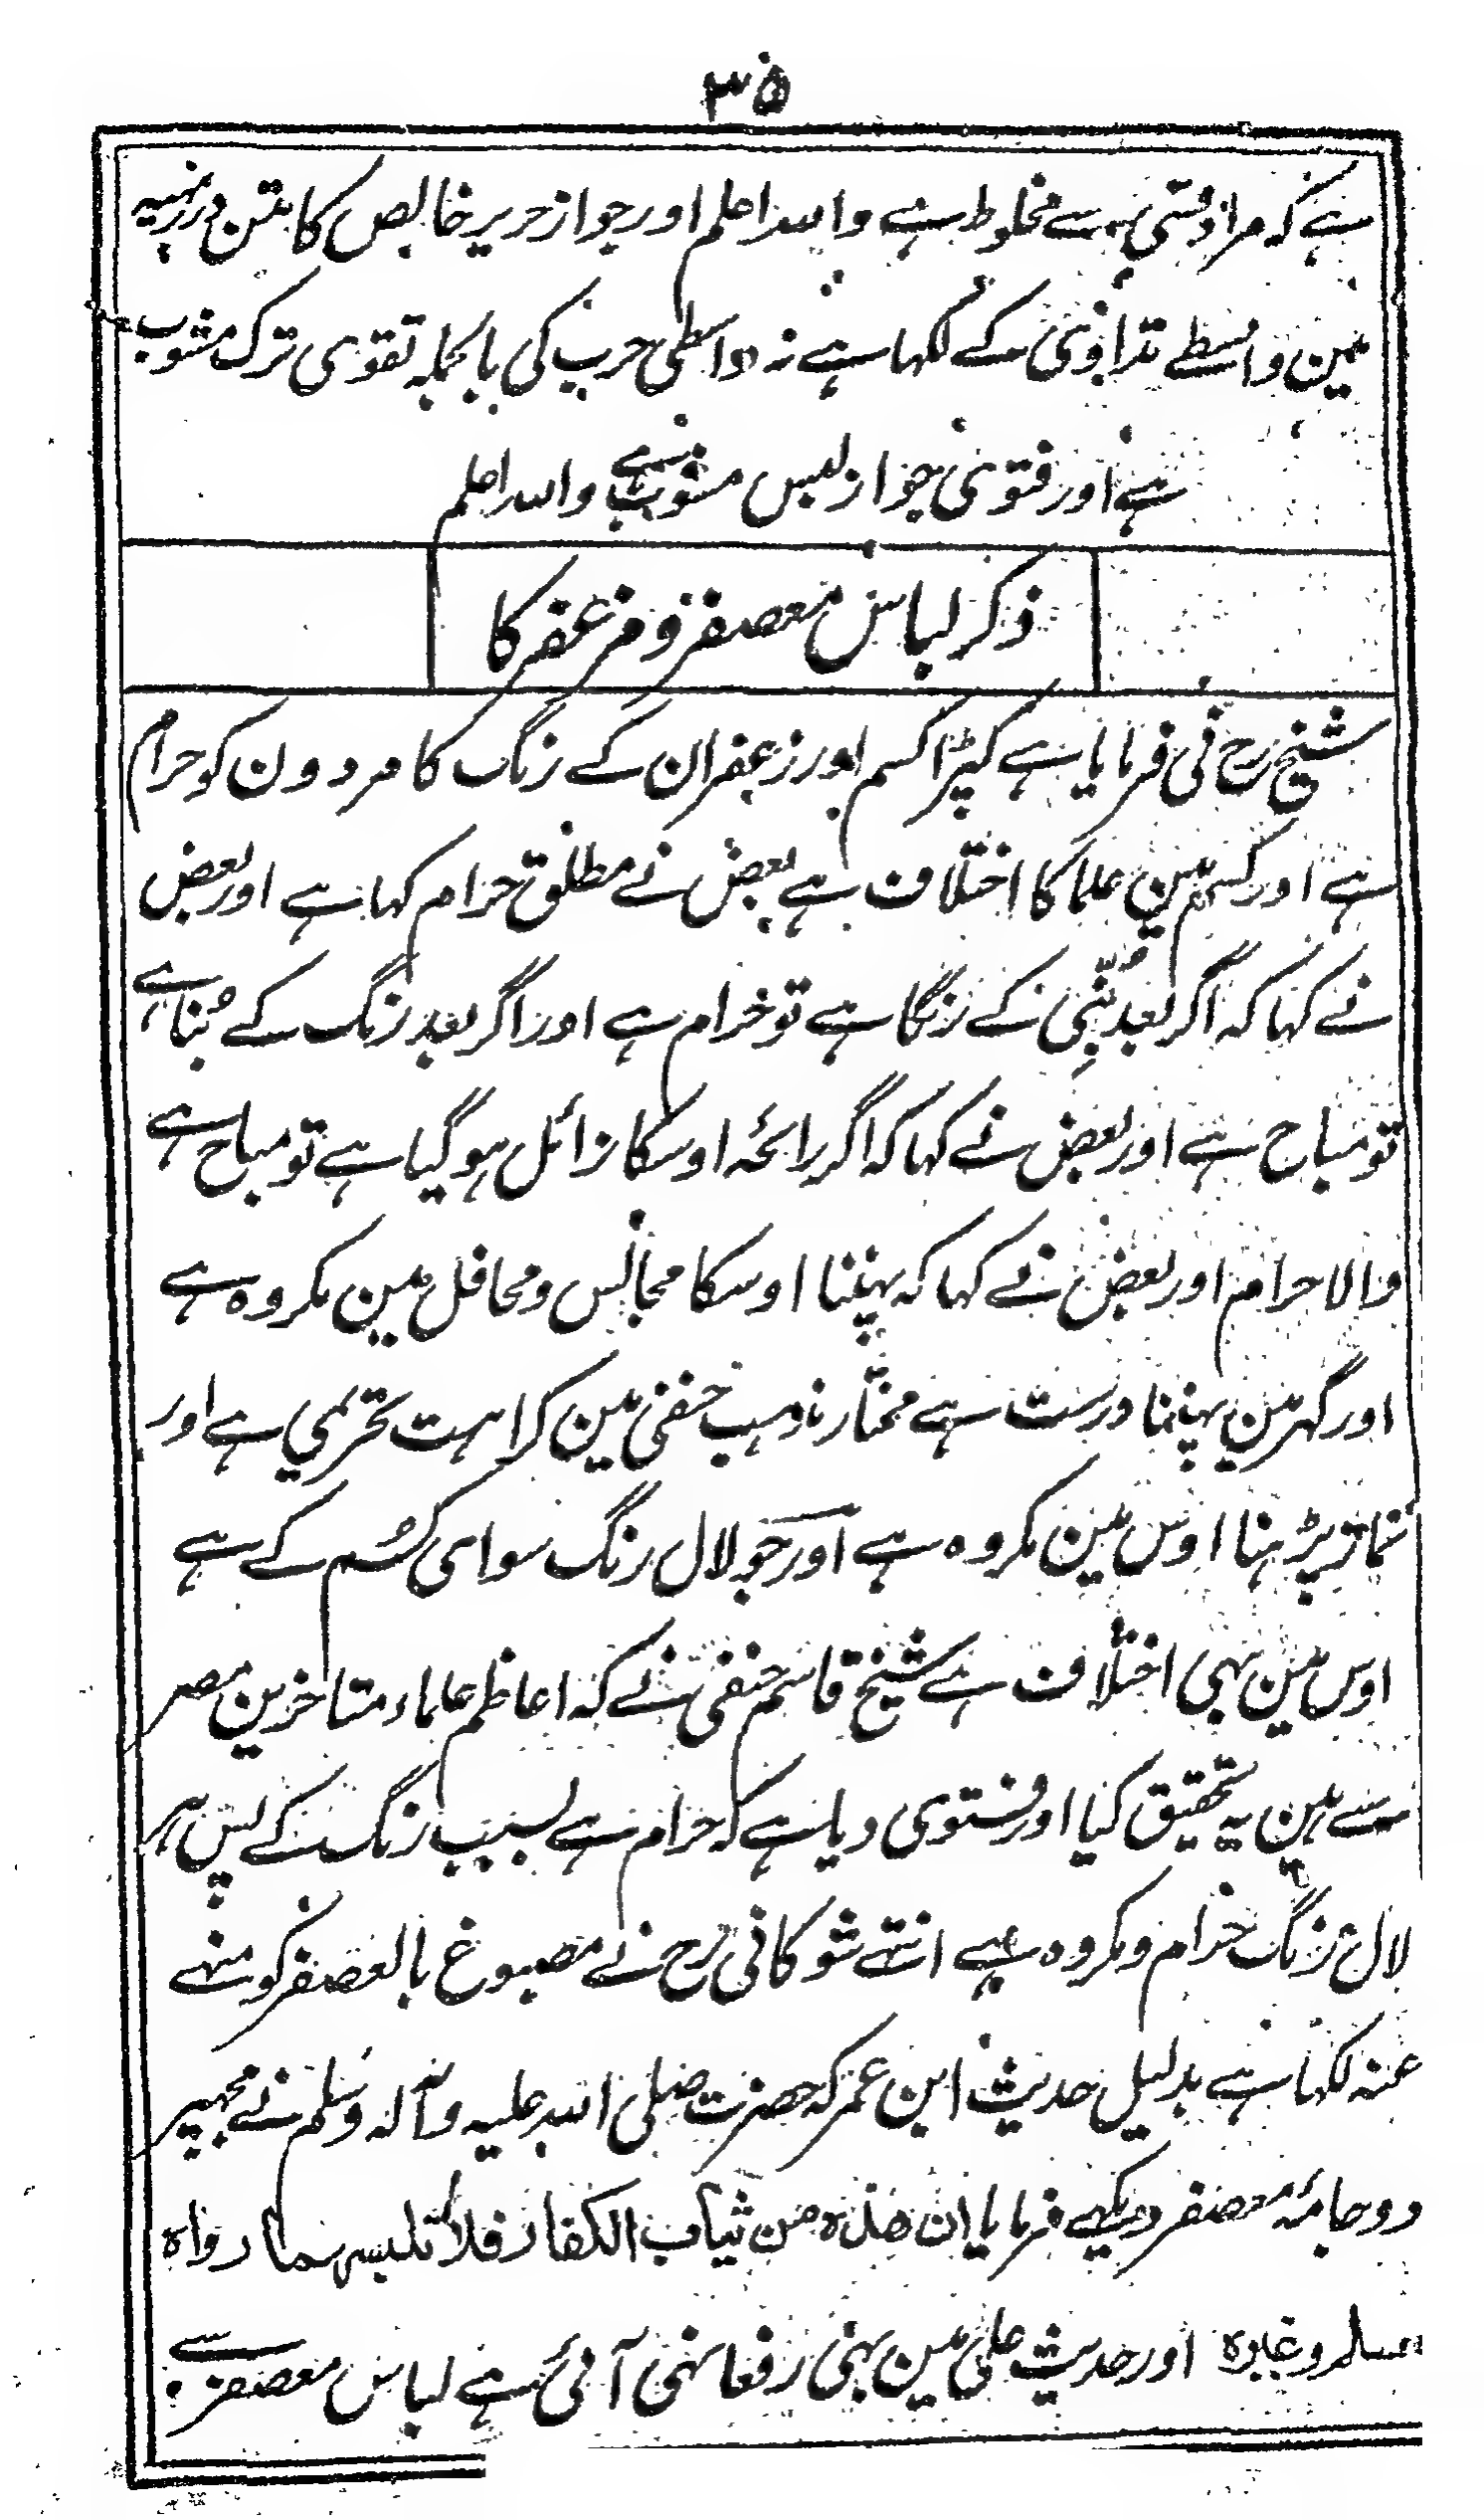 ۳۵
ہے کہ مراد قسی سے مخلوط ہے واللہ اعلم اور جواز حریر خالص کا متن درر بہیہ
مین واسطے تداوی کے لکہا ہے نہ واسطی حرب کی بالجملہ تقوی ترک مشوب
ہے اور فتوی جواز لبس مشوب ہے واللہ اعلم
ذکر لباس معصفر و مزعفر کا
شیخ رح نی فرمایا ہے کپڑا کسم اور زعفران کے رنگ کا مردون کو حرام
ہے اور کسم مین علما کا اختلاف ہے بعض نے مطلق حرام کہا ہے اور بعض
نے کہا کہ اگر بعد بُنّی کے رنگا ہے تو حرام ہے اور اگر بعد رنگ کے بُنا ہے
تو مباح ہے اور بعض نے کہا کہ اگر رائحہ اوسکا زائل ہو گیا ہے تو مباح ہے
والا حرام اور بعض نے کہا کہ پہننا اوسکا مجالس و محافل مین مکروہ ہے
اور گہر مین پہننا درست ہے مختار مذہب حنفی مین کراہت تحریمی ہے اور
نماز پڑہنا اوس مین مکروہ ہے اور جو لال رنگ سوای کسُم کے ہے
اوس مین بہی اختلاف ہے شیخ قاسم حنفی نے کہ اعاظم علماء متاخرین مصر
سے ہین یہ تحقیق کیا اور فتوی دیا ہے کہ حرام ہے بسبب رنگ کے پس ہر
لال رنگ حرام و مکروہ ہے انتہے شوکانی رح نے مصبوغ بالعصفر کو منہے
عنہ لکہا ہے بدلیل حدیث ابن عمر کہ حضرت صلی اللہ علیہ وآلہ وسلم نے مجہپر
دو جامۂ معصفر دیکہے فرمایا ان ھذہ من ثیاب الکفار فلا تلبسہما رواہ
مسلم وغیرہ اور حدیث علی مین بہی رفعا نہی آئی ہے لباس معصفر سے